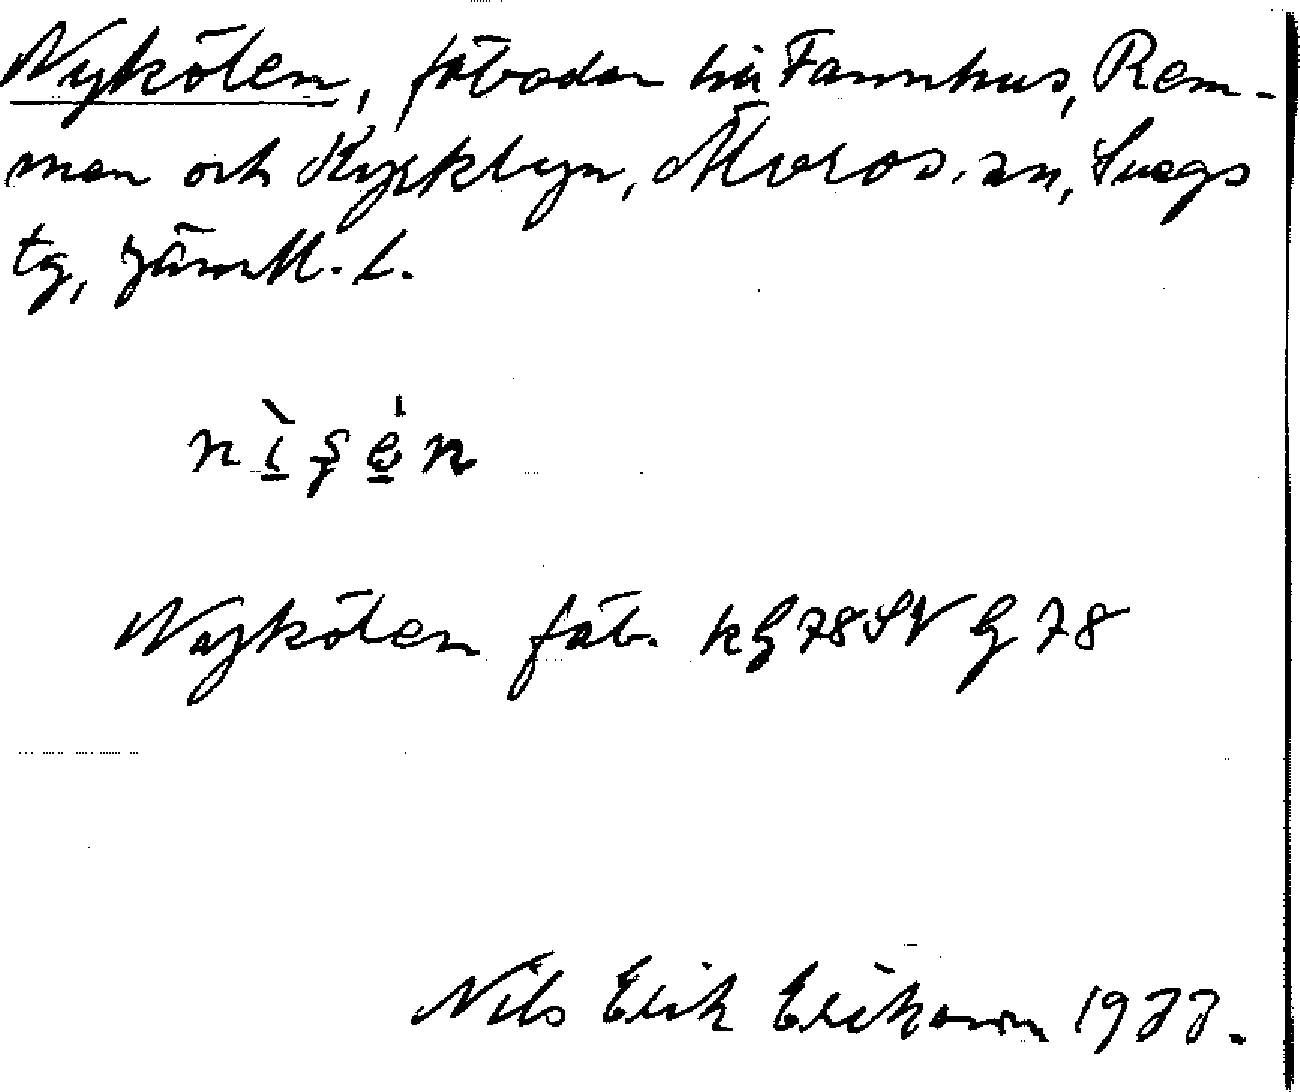 Nykölen, fäbodar till Fannhus, Rem-
men och Kyrkbyn, Älvros sn, Svegs
tg, Jämtl. l.
Nykölen fäb. kG78SV G78
Nils Erik Eriksson 1977.